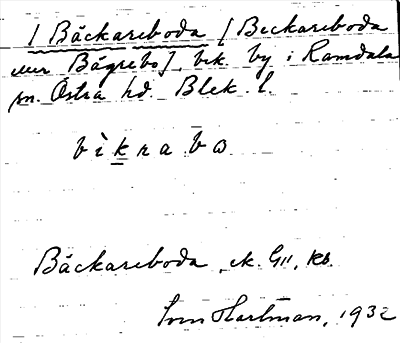 / Bäckareboda [Beckareboda
eller Bägrebo], bek. by i Ramdala
sn. Östra hd. Blek. l.
bìkrabo
Bäckareboda, ek. GII, kb.
Sven Hartman, 1932